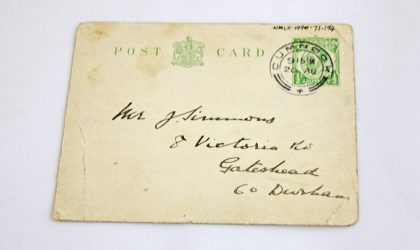 NMLH 1990.71.196
POST CARD
CUMNOCK
9 15 M
20 AU
Mr J. Simmons
8 Victoria Rd
Gateshead
Co Durham